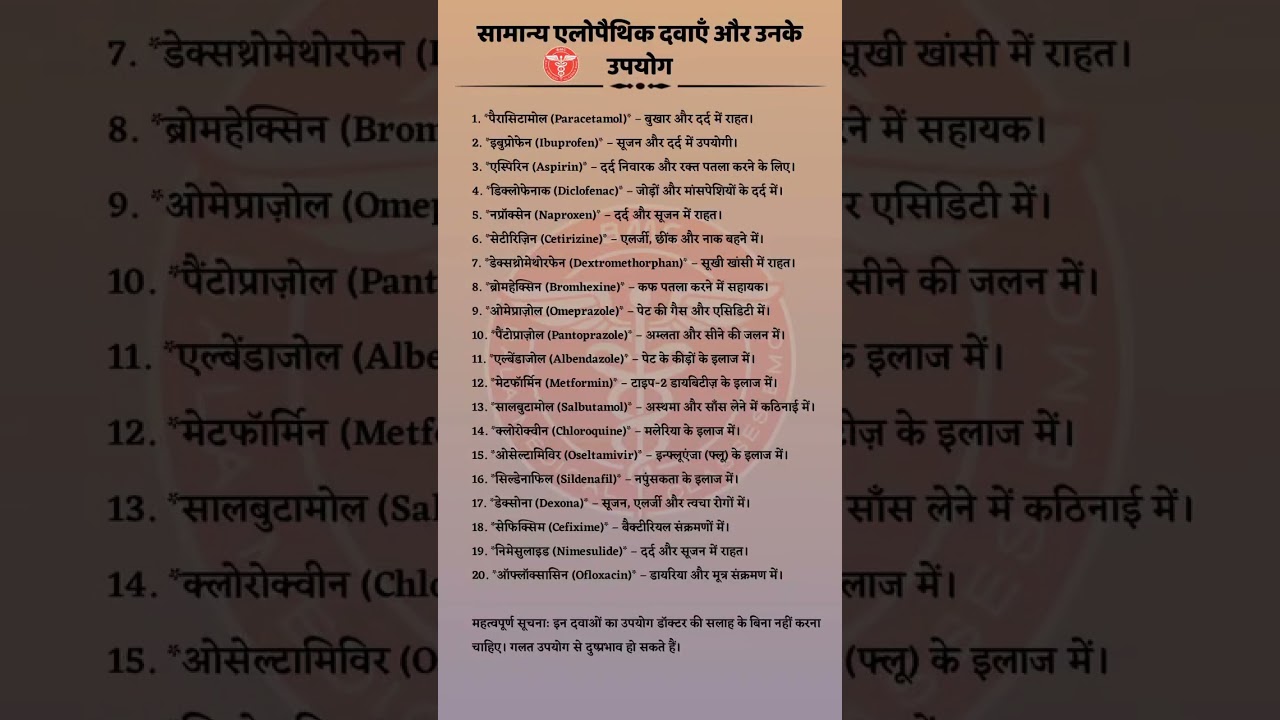 सामान्य एलोपैथिक दवाएँ और उनके
उपयोग
1. *पैरासिटामोल (Paracetamol)* – बुखार और दर्द में राहत।
2. *इबुप्रोफेन (Ibuprofen)* – सूजन और दर्द में उपयोगी।
3. *एस्पिरिन (Aspirin)* – दर्द निवारक और रक्त पतला करने के लिए।
4. *डिक्लोफेनाक (Diclofenac)* – जोड़ों और मांसपेशियों के दर्द में।
5. *नप्रॉक्सेन (Naproxen)* – दर्द और सूजन में राहत।
6. *सेटीरिज़िन (Cetirizine)* – एलर्जी, छींक और नाक बहने में।
7. *डेक्सथ्रोमेथोरफेन (Dextromethorphan)* – सूखी खांसी में राहत।
8. *ब्रोमहेक्सिन (Bromhexine)* – कफ पतला करने में सहायक।
9. *ओमेप्राज़ोल (Omeprazole)* – पेट की गैस और एसिडिटी में।
10. *पैंटोप्राज़ोल (Pantoprazole)* – अम्लता और सीने की जलन में।
11. *एल्बेंडाजोल (Albendazole)* – पेट के कीड़ों के इलाज में।
12. *मेटफॉर्मिन (Metformin)* – टाइप-2 डायबिटीज़ के इलाज में।
13. *सालबुटामोल (Salbutamol)* – अस्थमा और साँस लेने में कठिनाई में।
14. *क्लोरोक्वीन (Chloroquine)* – मलेरिया के इलाज में।
15. *ओसेल्टामिविर (Oseltamivir)* – इन्फ्लूएंजा (फ्लू) के इलाज में।
16. *सिल्डेनाफिल (Sildenafil)* – नपुंसकता के इलाज में।
17. *डेक्सोना (Dexona)* – सूजन, एलर्जी और त्वचा रोगों में।
18. *सेफिक्सिम (Cefixime)* – बैक्टीरियल संक्रमणों में।
19. *निमेसुलाइड (Nimesulide)* – दर्द और सूजन में राहत।
20. *ऑफ्लॉक्सासिन (Ofloxacin)* – डायरिया और मूत्र संक्रमण में।
महत्वपूर्ण सूचना: इन दवाओं का उपयोग डॉक्टर की सलाह के बिना नहीं करना
चाहिए। गलत उपयोग से दुष्प्रभाव हो सकते हैं।